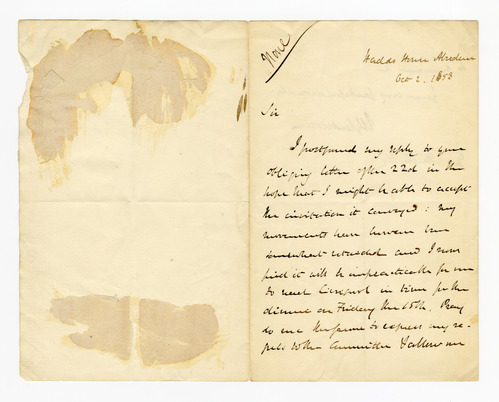 None
Haddo House Aberdeen
Oct 2. 1853
Sir
I postponed my reply to your
obliging letter of the 22d in the
hope that I might be able to accept
the invitation it conveyed: my
movements have however been
somewhat retarded and I now
find it will be impracticable for me
to reach Liverpool in time for the
dinner on Friday the
do me the favour to express my re-
grets to the Committee & allow me